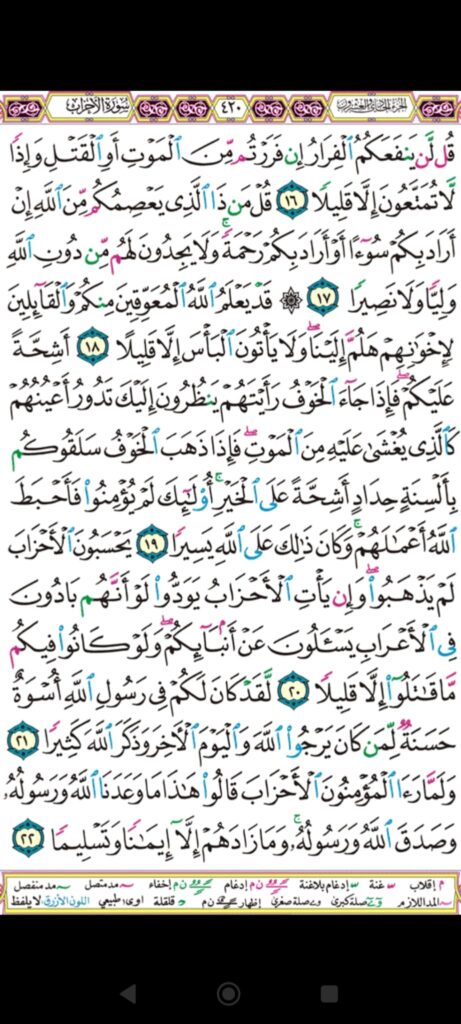 سورة الأحزاب ٤٢٠ الجزء الحادي والعشرون
قُل لَّن يَنفَعَكُمُ ٱلۡفِرَارُ إِن فَرَرۡتُم مِّنَ ٱلۡمَوۡتِ أَوِ ٱلۡقَتۡلِ وَإِذٗا
لَّا تُمَتَّعُونَ إِلَّا قَلِيلٗا ١٦ قُلۡ مَن ذَا ٱلَّذِي يَعۡصِمُكُم مِّنَ ٱللَّهِ إِنۡ
أَرَادَ بِكُمۡ سُوٓءًا أَوۡ أَرَادَ بِكُمۡ رَحۡمَةٗۚ وَلَا يَجِدُونَ لَهُم مِّن دُونِ ٱللَّهِ
وَلِيّٗا وَلَا نَصِيرٗا ١٧ ۞ قَدۡ يَعۡلَمُ ٱللَّهُ ٱلۡمُعَوِّقِينَ مِنكُمۡ وَٱلۡقَآئِلِينَ
لِإِخۡوَٰنِهِمۡ هَلُمَّ إِلَيۡنَاۖ وَلَا يَأۡتُونَ ٱلۡبَأۡسَ إِلَّا قَلِيلًا ١٨ أَشِحَّةً
عَلَيۡكُمۡۖ فَإِذَا جَآءَ ٱلۡخَوۡفُ رَأَيۡتَهُمۡ يَنظُرُونَ إِلَيۡكَ تَدُورُ أَعۡيُنُهُمۡ
كَٱلَّذِي يُغۡشَىٰ عَلَيۡهِ مِنَ ٱلۡمَوۡتِۖ فَإِذَا ذَهَبَ ٱلۡخَوۡفُ سَلَقُوكُم
بِأَلۡسِنَةٍ حِدَادٍ أَشِحَّةً عَلَى ٱلۡخَيۡرِۚ أُوْلَٰٓئِكَ لَمۡ يُؤۡمِنُواْ فَأَحۡبَطَ
ٱللَّهُ أَعۡمَٰلَهُمۡۚ وَكَانَ ذَٰلِكَ عَلَى ٱللَّهِ يَسِيرٗا ١٩ يَحۡسَبُونَ ٱلۡأَحۡزَابَ
لَمۡ يَذۡهَبُواْۖ وَإِن يَأۡتِ ٱلۡأَحۡزَابُ يَوَدُّواْ لَوۡ أَنَّهُم بَادُونَ
فِي ٱلۡأَعۡرَابِ يَسۡـَٔلُونَ عَنۡ أَنۢبَآئِكُمۡۖ وَلَوۡ كَانُواْ فِيكُم
مَّا قَٰتَلُوٓاْ إِلَّا قَلِيلٗا ٢٠ لَّقَدۡ كَانَ لَكُمۡ فِي رَسُولِ ٱللَّهِ أُسۡوَةٌ
حَسَنَةٞ لِّمَن كَانَ يَرۡجُواْ ٱللَّهَ وَٱلۡيَوۡمَ ٱلۡأٓخِرَ وَذَكَرَ ٱللَّهَ كَثِيرٗا ٢١
وَلَمَّا رَءَا ٱلۡمُؤۡمِنُونَ ٱلۡأَحۡزَابَ قَالُواْ هَٰذَا مَا وَعَدَنَا ٱللَّهُ وَرَسُولُهُۥ
وَصَدَقَ ٱللَّهُ وَرَسُولُهُۥۚ وَمَا زَادَهُمۡ إِلَّآ إِيمَٰنٗا وَتَسۡلِيمٗا ٢٢
م إقلاب غنة إدغام بلاغنة ن م إدغام ن م إخفاء مد متصل مد منفصل
المد اللازم صلة كبرى صلة صغرى إظهار ن م قلقلة اوى: طبيعي اللون الأزرق: لا يلفظ